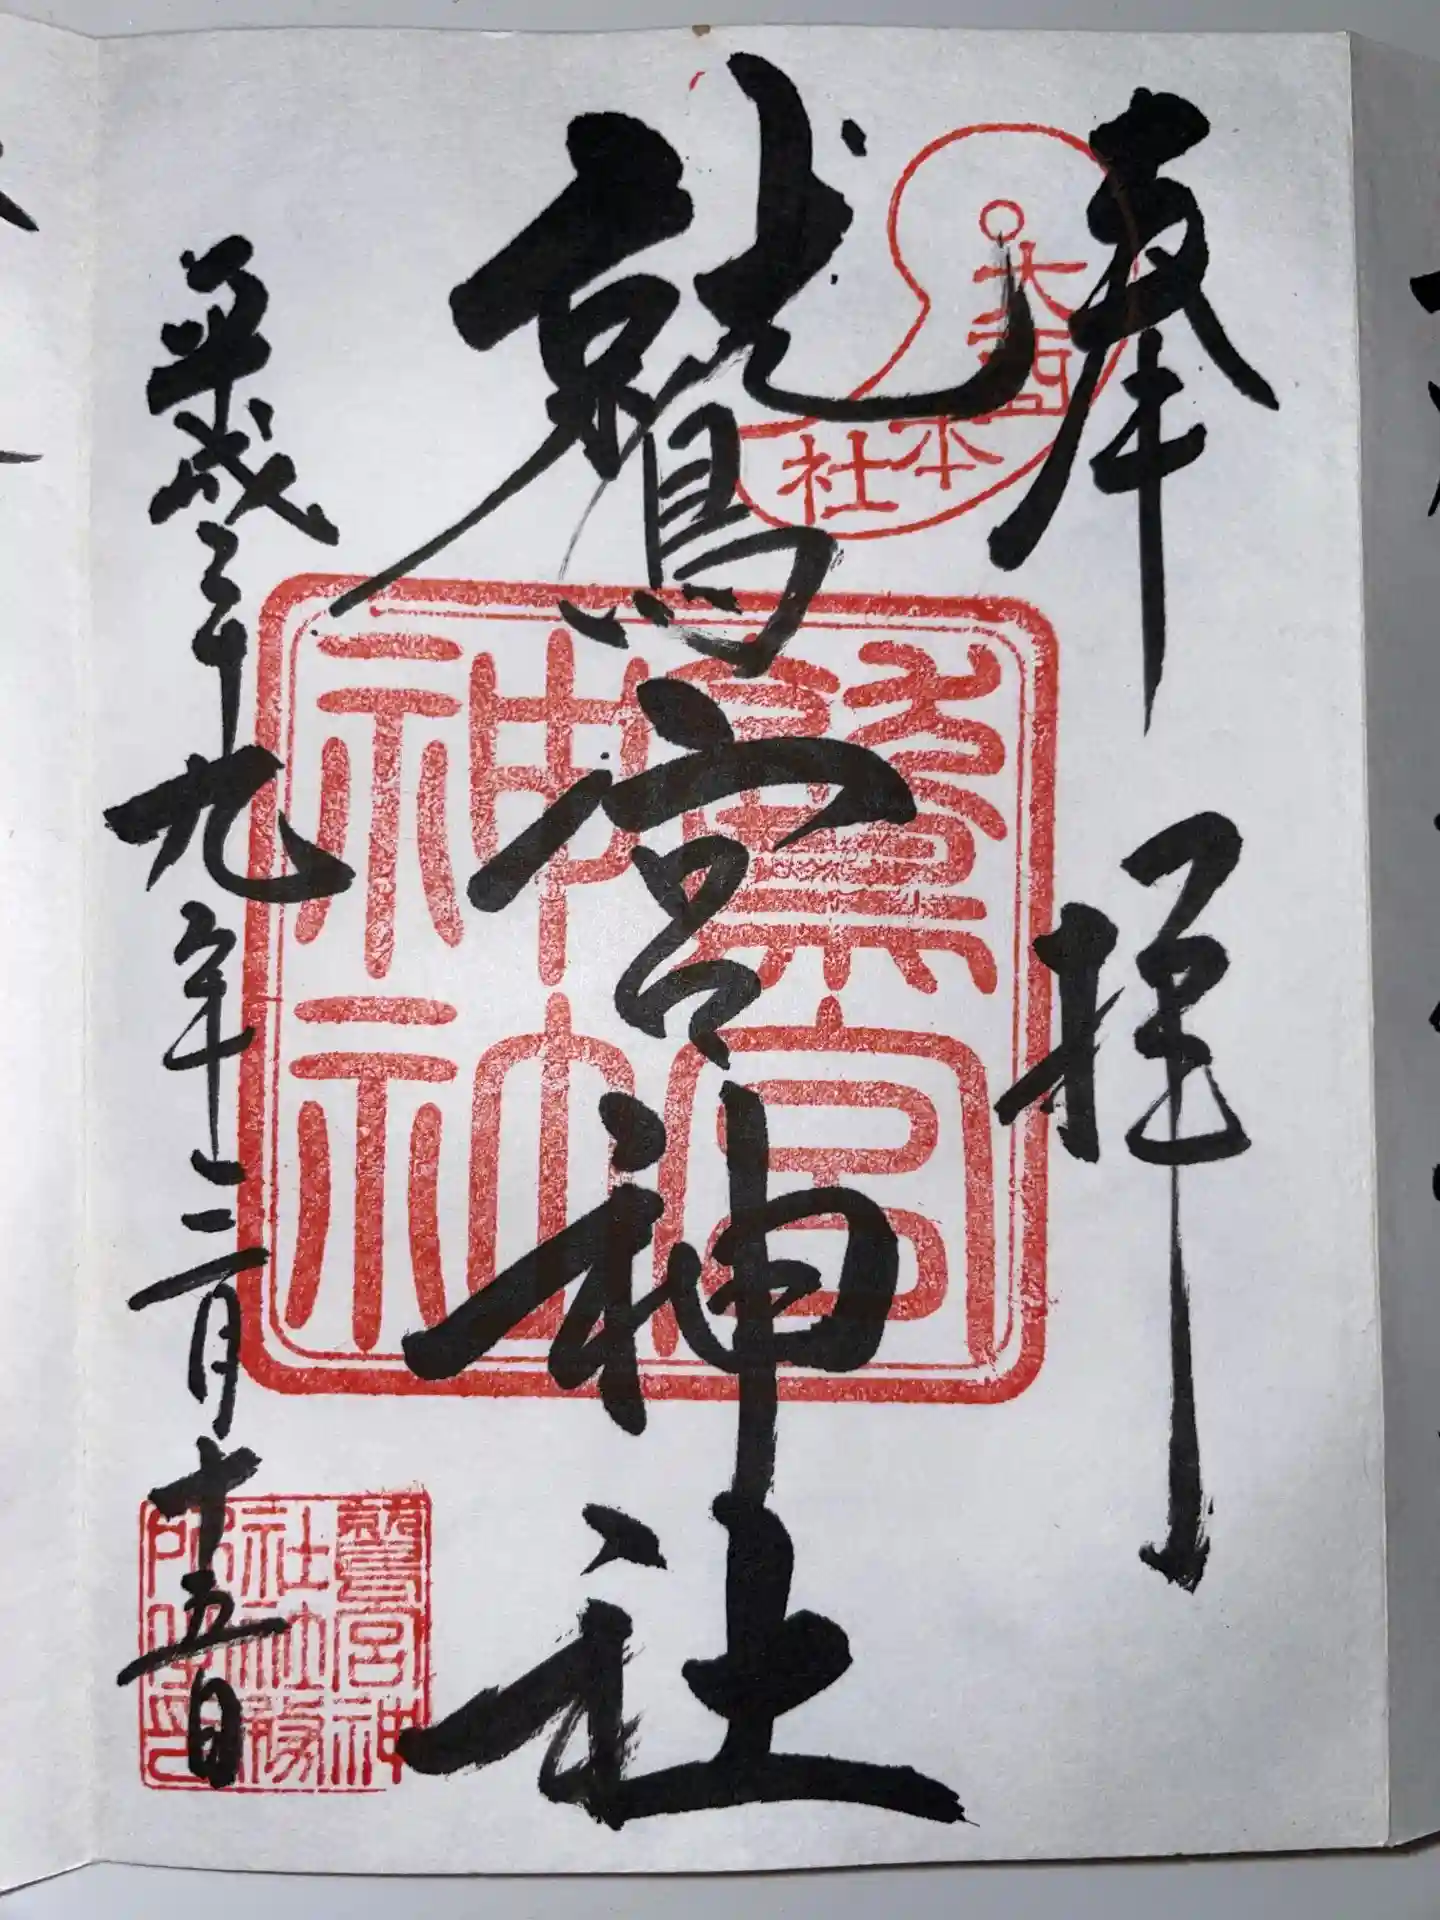 奉拝
大酉
本社
鷲宮神社
鷲宮
神社
平成二十九年三月十五日
鷲宮神
社社務
所之印